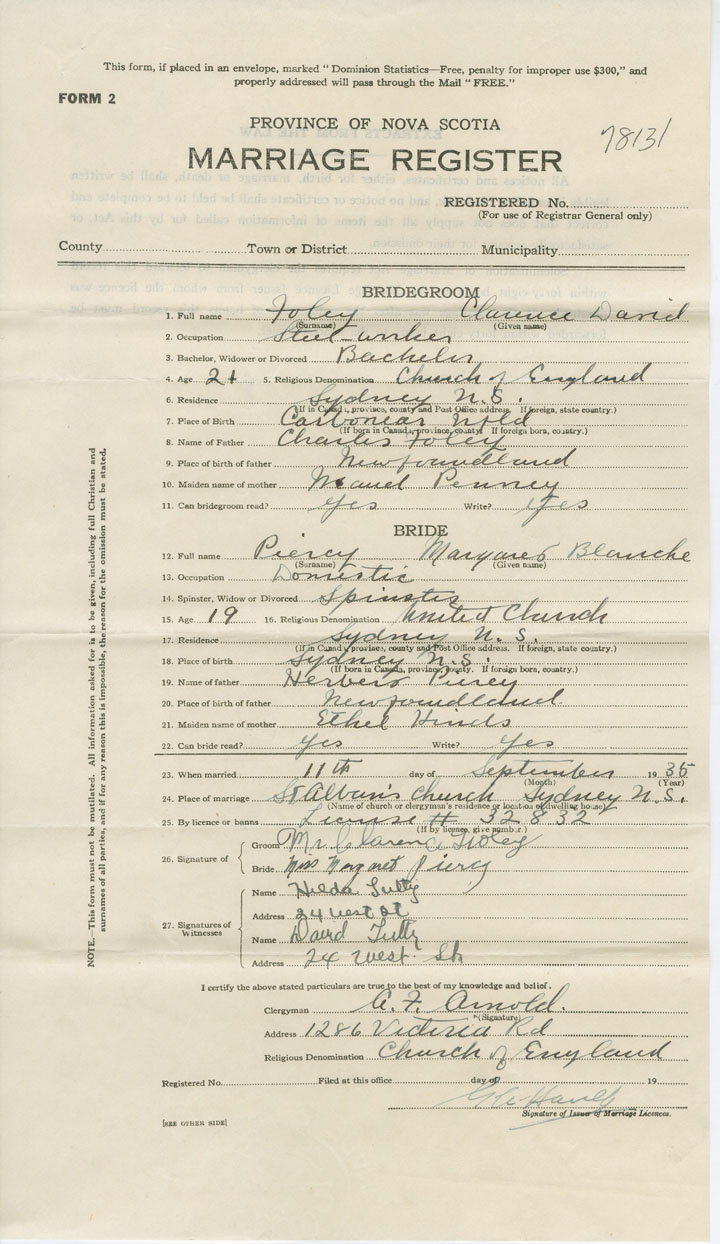 This form, if placed in an envelope, marked "Dominion Statistics—Free, penalty for improper use $300," and
properly addressed will pass through the Mail "FREE."
FORM 2
PROVINCE OF NOVA SCOTIA
78131
MARRIAGE REGISTER
REGISTERED No.
(For use of Registrar General only)
County Town or District Municipality
BRIDEGROOM
1. Full name Foley Clarence David
(Surname) (Given name)
2. Occupation Steel-worker
3. Bachelor, Widower or Divorced Bachelor
4. Age 21 5. Religious Denomination Church of England
6. Residence Sydney N.S.
(If in Canada, province, county and Post Office address. If foreign, state country.)
7. Place of Birth Carbonear Nfld
(If born in Canada, province, county. If foreign born, country.)
8. Name of Father Charles Foley
9. Place of birth of father Newfoundland
10. Maiden name of mother Maud Penney
11. Can bridegroom read? Yes Write? Yes
BRIDE
12. Full name Piercy Margaret Blanche
(Surname) (Given name)
13. Occupation Domestic
14. Spinster, Widow or Divorced Spinster
15. Age 19 16. Religious Denomination United Church
17. Residence Sydney N.S.
(If in Canada, province, county and Post Office address. If foreign, state country.)
18. Place of birth Sydney N.S.
(If born in Canada, province, county. If foreign born, country.)
19. Name of father Herbert Piercy
20. Place of birth of father Newfoundland.
21. Maiden name of mother Ethel Hinds
22. Can bride read? Yes Write? Yes
23. When married 11th day of September 1935
(Month) (Year)
24. Place of marriage St Alban's Church Sydney N.S.
(Name of church or clergyman's residence or location of dwelling house)
25. By licence or banns License # 32832
(If by licence, give number.)
26. Signature of
Groom Mr Clarence Foley
Bride Miss Margaret Piercy
27. Signatures of Witnesses
Name Hilda Tutty
Address 24 West St
Name David Tutty
Address 24 West St
I certify the above stated particulars are true to the best of my knowledge and belief.
Clergyman A. F. Arnold.
(Signature)
Address 1286 Victoria Rd
Religious Denomination Church of England
Registered No. Filed at this office day of 19
Signature of Issuer of Marriage Licences.
[SEE OTHER SIDE]
NOTE.—This form must not be mutilated. All information asked for is to be given, including full Christian and
surnames of all parties, and if for any reason this is impossible, the reason for the omission must be stated.